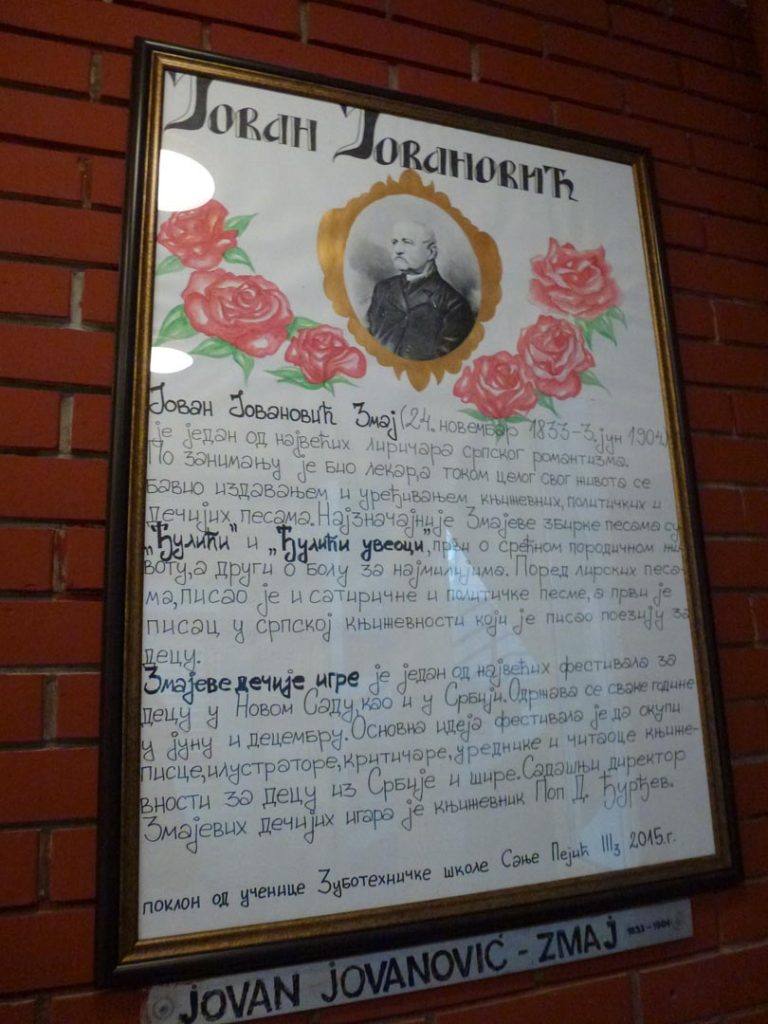 Јован Јовановић
Јован Јовановић Змај (24. новембар 1833-3. јун 1904)
је један од највећих лиричара српског романтизма.
По занимању је био лекар, а током целог свог живота се
бавио издавањем и уређивањем књижевних, политичких и
дечијих песама. Најзначајније Змајеве збирке песама су
„Ђулићи" и „Ђулићи увеоци", први о срећном породичном жи-
воту, а други о болу за најмилијима. Поред лирских песа-
ма, писао је и сатиричне и политичке песме, а први је
писац у српској књижевности који је писао поезију за
децу.
Змајеве дечије игре је један од највећих фестивала за
децу у Новом Саду, као и у Србији. Одржава се сваке године
у јуну и децембру. Основна идеја фестивала је да окупи
писце, илустраторе, критичаре, уреднике и читаоце књиже-
вности за децу из Србије и шире. Садашњи директор
Змајевих дечијих игара је књижевник Поп Д. Ђурђев.
поклон од ученице Зуботехничке школе Сање Пејић III3 2015.г.
JOVAN JOVANOVIĆ - ZMAJ 1833-1904